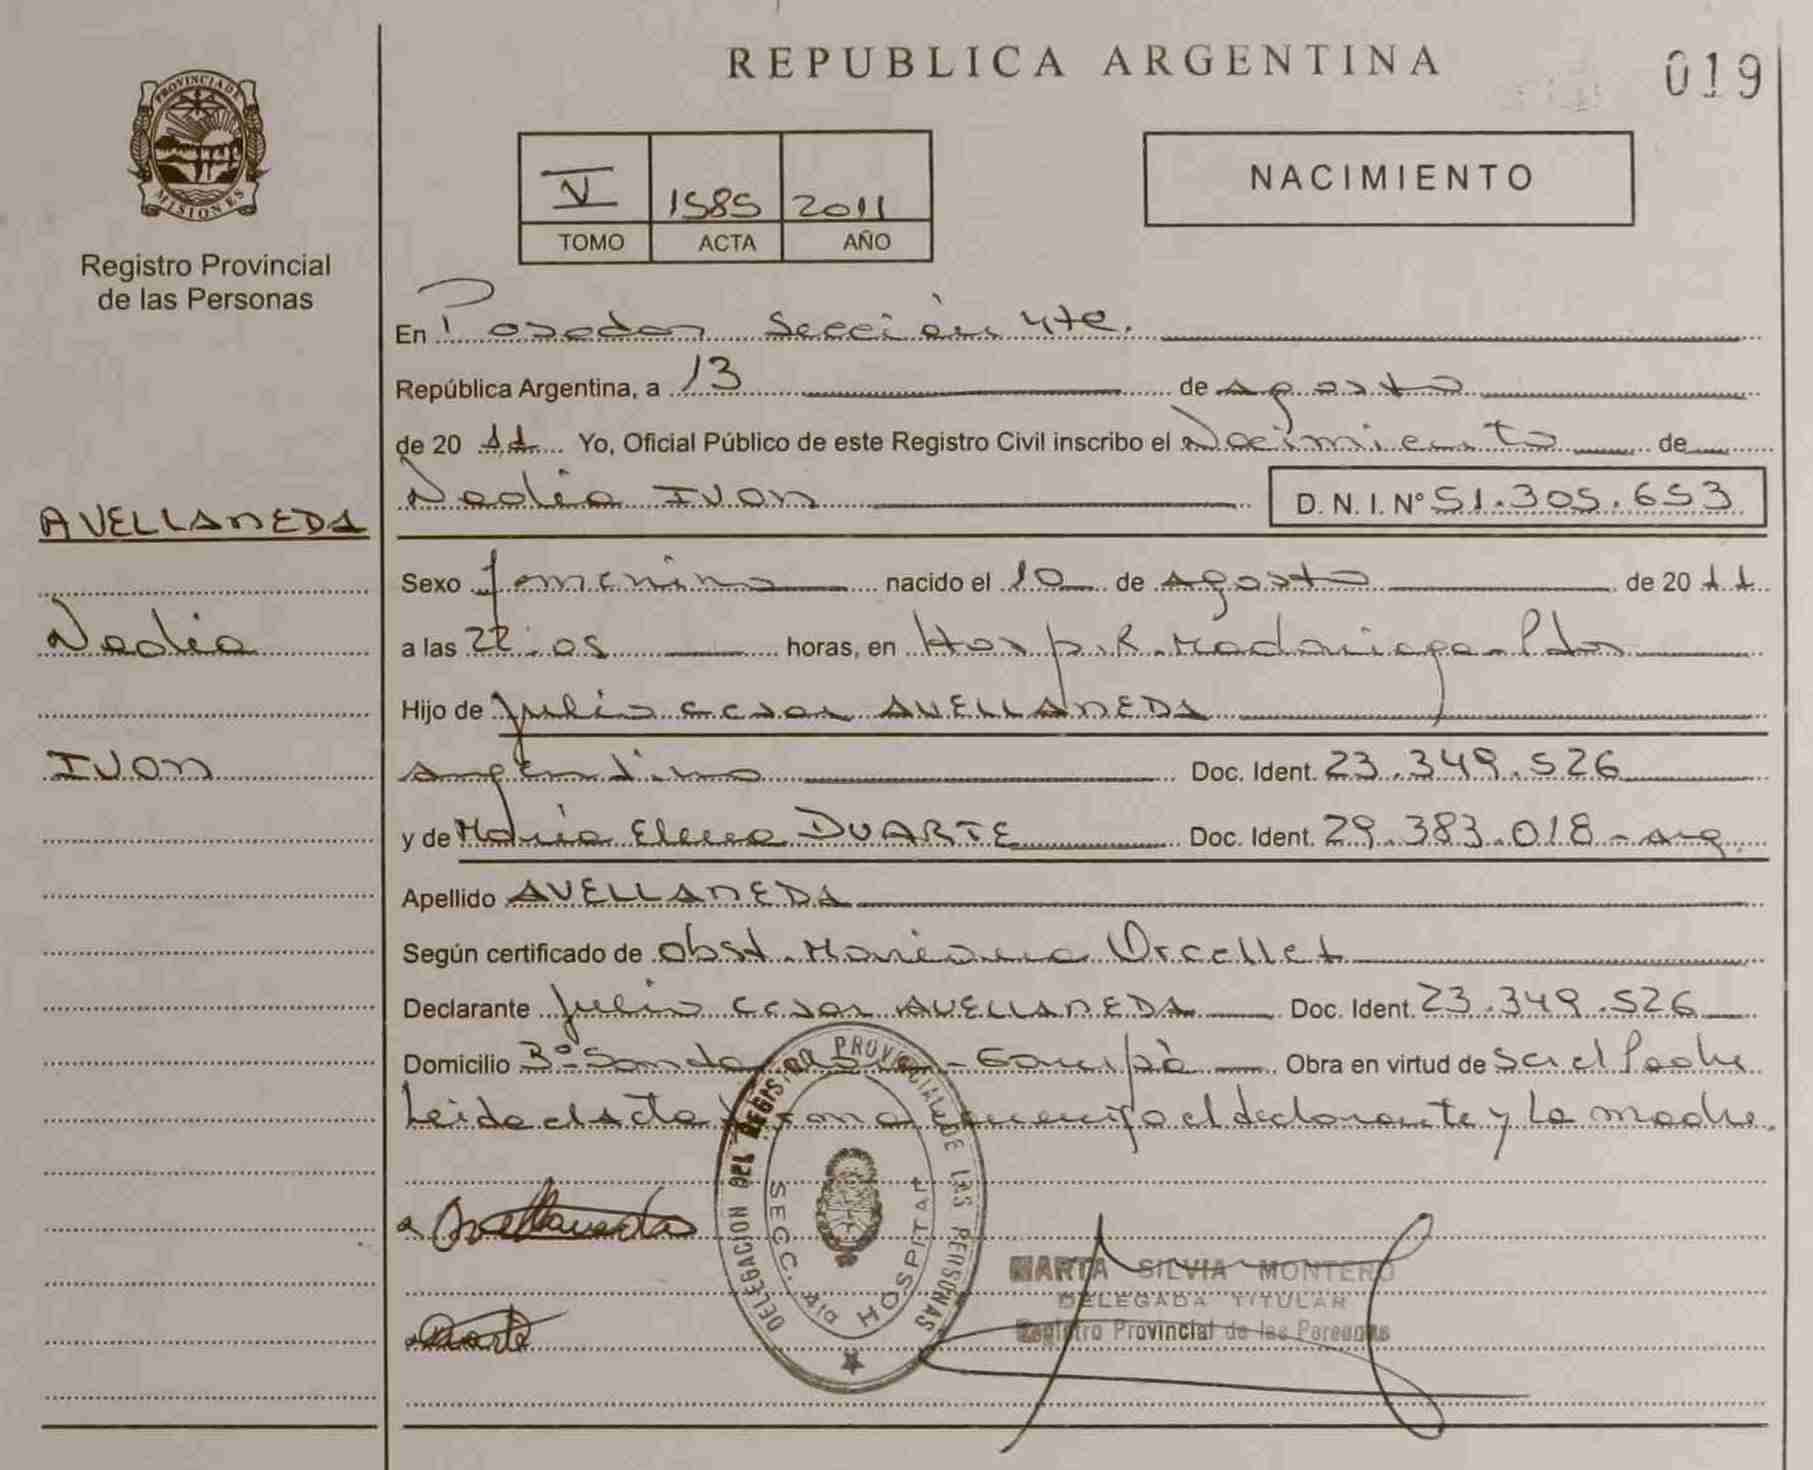 REPUBLICA ARGENTINA
019
PROVINCIA DE
MISIONES
Registro Provincial
de las Personas
V 1585 2011
TOMO ACTA AÑO
NACIMIENTO
En Posadas Sección 4ta.
República Argentina, a 13 de agosto
de 20 11 Yo, Oficial Público de este Registro Civil inscribo el Nacimiento de
Nadia IVON D. N. I. Nº 51.305.653
AVELLANEDA
Nadia
IVON
Sexo femenino nacido el 10 de agosto de 20 11
a las 22:05 horas, en Hosp. R. Madariaga - Pdas
Hijo de Julio cesar AVELLANEDA
argentino Doc. Ident. 23.349.526
y de María Elena DUARTE Doc. Ident. 29.383.018 - arg.
Apellido AVELLANEDA
Según certificado de obst. Mariana
Declarante Julio cesar AVELLANEDA Doc. Ident. 23.349.526
Domicilio Bº - Garupá Obra en virtud de ser el Padre
Leida el acta firma conmigo el declarante y La madre.
Avellaneda
DELEGACION DEL REGISTRO PROVINCIAL DE LAS PERSONAS
SECC. 4ta HOSPITAL
MARTA SILVIA MONTERO
DELEGADA TITULAR
Registro Provincial de las Personas